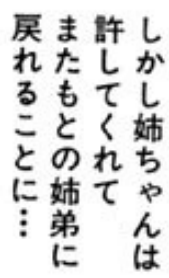 しかし姉ちゃんは
許してくれて
またもとの姉弟に
戻れることに…